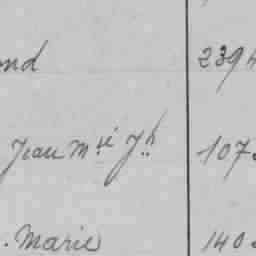 ond 239
Jean Mie Jh 107
. Marie 140